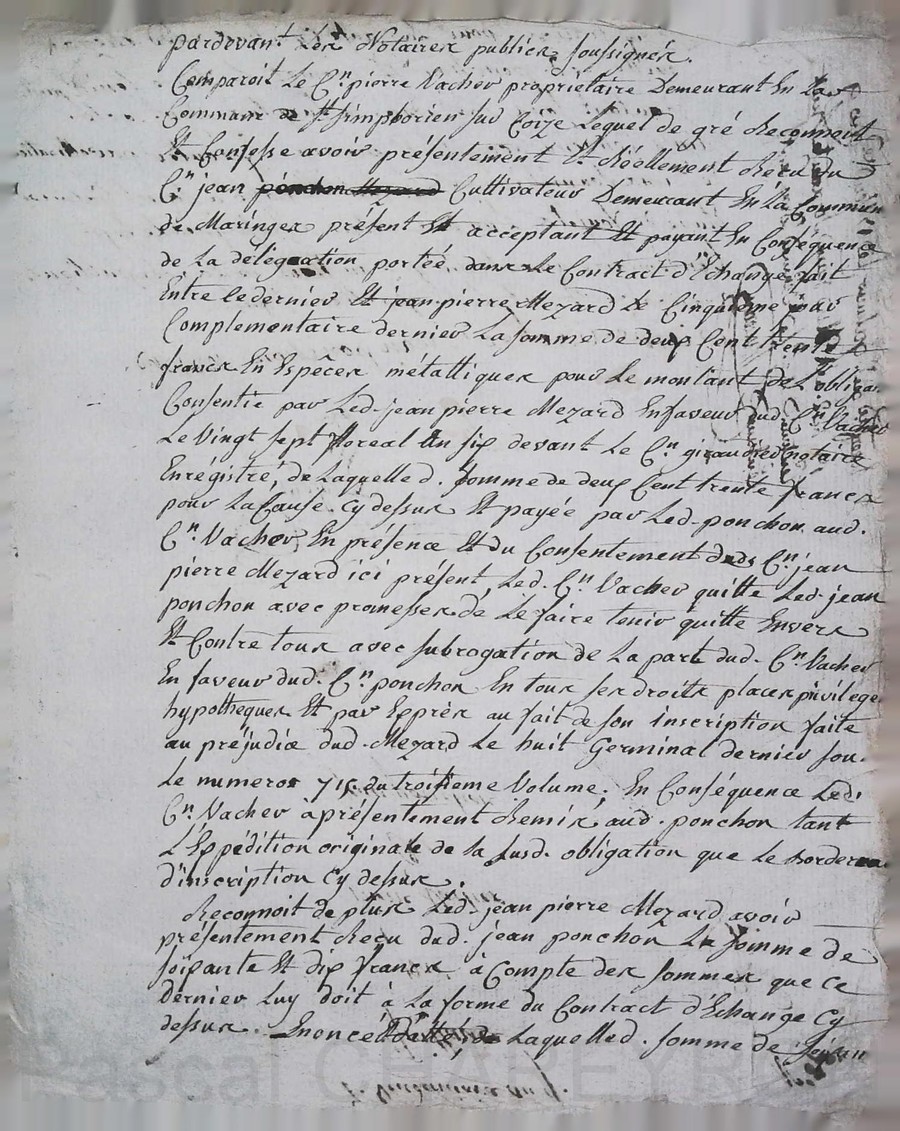 pardevant Les Notaires publics soussignés.
Comparoit Le C.en pierre Vacher propriétaire Demeurant En La
Commune de St simphorien sur Coize Lequel de gré Reconnoit
Et Confesse avoir présentement Et Réellement Recu du
C.en jean ponchon Mezard Cultivateur Demeurant En La Commune
de Maringes présent Et acceptant Et payant En Conséquence
de La délégation portée dans Le Contract d'Echange fait
Entre le dernier Et jean pierre Mezard Le Cinquieme jour
Complementaire dernier La somme de deux Cent trente
francs En Espêces métalliques pour Le montant de L'obliga.
Consentie par Led. jean pierre Mezard En faveur dud. C.en Vacher
Le Vingt sept floreal an six devant Le C.en giraudier notaire
Enrégistré, de Laquelle d. somme de deux Cent trente francs
pour La Cause Cy dessus Et payée par Led. ponchon aud.
C.en Vacher, En présence Et du Consentement dud. C.en jean
pierre Mezard ici présent Led. C.en Vacher quitte Led. jean
ponchon avec promesses de Le faire tenir quitte Envers
Et Contre tous avec subrogation de La part dud. C.en Vacher
En faveur dud. C.en ponchon En tous ses droits places privilege
hypotheques Et par Exprès au fait de son inscription faite
au préjudice dud. Mezard Le huit Germinal dernier sou.
Le numeros du troisieme Volume. En Conséquence Led.
C.en Vacher à présentement Remis aud. ponchon tant
L'Expédition originale de la susd. obligation que Le bordereau
d'inscription Cy dessus.
Reconnoit de plus Led. jean pierre Mezard avoir
présentement Recu dud. jean ponchon La somme de
soixante Et dix francs à Compte des sommes que Ce
dernier Luy doit à La forme du Contract d'Echange Cy
dessus Enoncé de Laquelle d. somme de